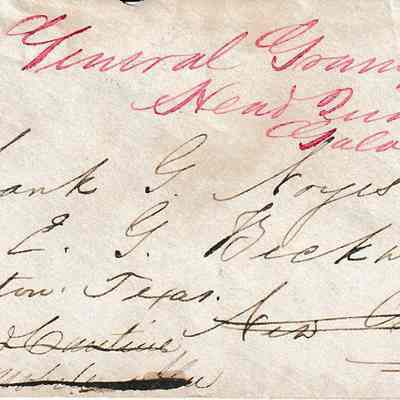 General Gran
Head Qua
Galv
ank G. Noyes
E. G. Beckw
ton. Texas.
New